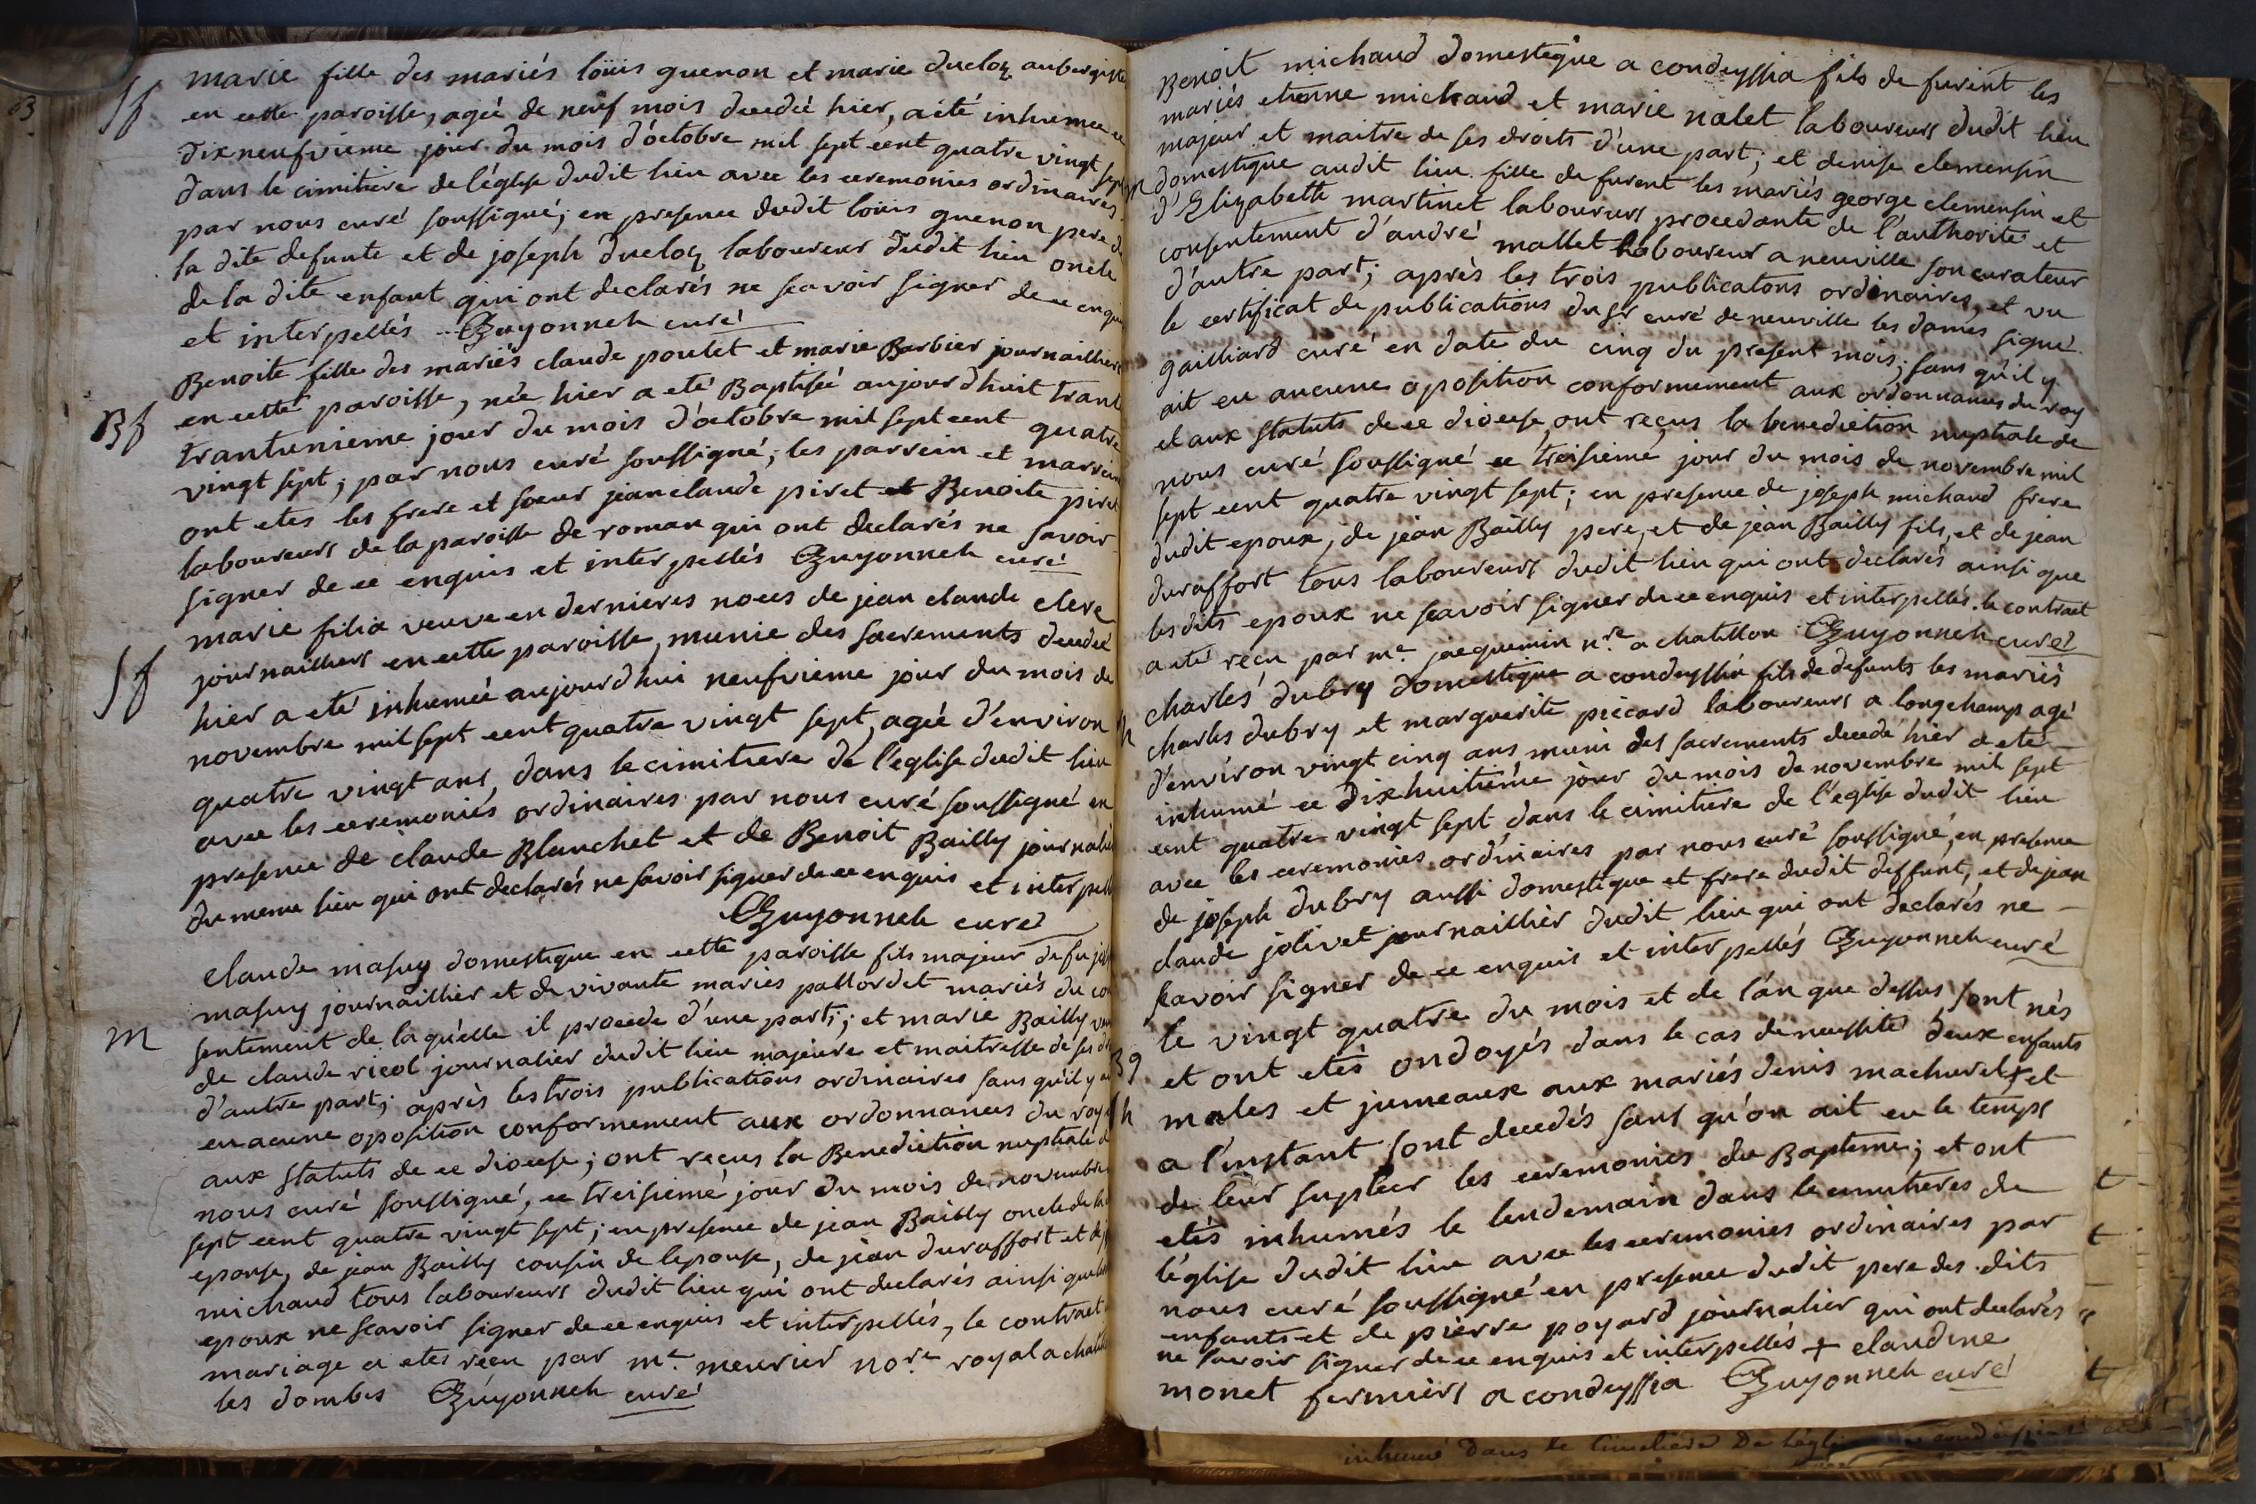 Sf
marie fille des mariés loüis guenon et marie ducloz aubergiste
en cette paroisse, agée de neuf mois decedée hier, a été inhumée ce
dixneufvieme jour du mois d'octobre mil sept cent quatre vingt sept
dans le cimitiere de l'église dudit lieu avec les ceremonies ordinaires
par nous curé soussigné; en presence dudit loüis guenon pere de
la dite defunte et de joseph ducloz laboureur dudit lieu oncle
de la dite enfant qui ont declarés ne scavoir signer de ce enquis
et interpellés Guyonneh curé
Bf
Benoite fille des mariés claude poulet et marie Barbier journailliers
en cette paroisse, née hier a eté Baptisée aujourdhuit trant
trantunieme jour du mois d'octobre mil sept cent quatre
vingt sept; par nous curé soussigné; les parrein et marreine
ont etes les frere et soeur jeanclaude piret et Benoite piret
laboureurs de la paroisse de roman qui ont declarés ne savoir
signer de ce enquis et interpellés Guyonneh curé
Sf
marie filia veuve en dernieres noces de jean claude clere
journailliers en cette paroisse, munie des sacrements decedée
hier a eté inhumée aujourdhui neufvieme jour du mois de
novembre mil sept cent quatre vingt sept, agée d'environ
quatre vingt ans, dans le cimitiere de l'eglise dudit lieu
avec les ceremoniés ordinaires par nous curé soussigné en
presence de claude Blanchet et de Benoit Bailly journalie
du meme lieu qui ont declarés ne savoir signer de ce enquis et interpellé
Guyonneh curé
m
claude masuy domestique en cette paroisse fils majeur de fu
masuy journaillier et de vivante mariés pallordet mariés du con
sentement de la quelle il procede d'une part; et marie Bailly
de claude ricol journalier dudit lieu majeure et maitresse de ses
d'autre part; après les trois publications ordinaires sans qu'il y ai
eu acune oposition conformement aux ordonnances du roy
aux statuts de ce diocese; ont reçus la Benediction nuptiale de
nous curé soussigné, ce treisieme jour du mois de novembre
sept cent quatre vingt sept; en presence de jean Bailly oncle de
epouse, de jean Bailly cousin de lepouse, de jean duraffort et de
michaud tous laboureurs dudit lieu qui ont declarés ainsi que
epoux ne scavoir signer de ce enquis et interpellés, le contract
mariage a etes reçu par me. meurier nore. royal a
les dombes Guyonneh curé
Benoit michaud domestique a condeyssia fils de furent les
mariés etienne michaud et marie nalet laboureurs dudit lieu
majeur et maitre de ses droits d'une part; et denise clemensin
domestique audit lieu fille de furent les mariés george clemensin et
d'Elizabette martinet laboureurs procedante de l'authorité et
consentement d'andré mallet laboureur a neuville son curateur
d'autre part; après les trois publicatons ordinaires, et vu
le certificat de publications du sr. curé de neuville les dames signé
gailliard curé en date du cinq du present mois; sans qu'il y
ait eu aucune oposition conformement aux ordonnances du roy
et aux statuts de ce diocese, ont reçus la benediction nuptiale de
nous curé soussigné ce treisieme jour du mois de novembre mil
sept cent quatre vingt sept; en presence de joseph michaud frere
dudit epoux, de jean Bailly pere, et de jean Bailly fils, et de jean
duraffort tous laboureurs dudit lieu qui ont declarés ainsi que
lesdits epoux ne scavoir signer de ce enquis et interpellés. le contract
a eté reçu par me. jacquemin nre. a chatillon Guyonneh curé
charles dubry domestique a condeyssia fils de defunts les mariés
charles dubry et marguerite piccard laboureurs a longchamp agé
d'environ vingt cinq ans muni des sacrements decedé hier a eté
inhumé ce dixhuitiéme jour du mois de novembre mil sept
cent quatre vingt sept dans le cimitiere de l'eglise dudit lieu
avec les ceremonies ordinaires par nous curé soussigné, en presence
de joseph dubry aussi domestique et frere dudit deffunt, et de jean
claude jolivet journaillier dudit lieu qui ont declarés ne
scavoir signer de ce enquis et interpellés Guyonneh curé
le vingt quatre du mois et de l'an que dessus sont nés
et ont etés ondoyés dans le cas de necessité deux enfants
males et jumeaux aux mariés denis machurel + et
a l'instant sont decedés sans qu'on ait eu le temps
de leur supleer les ceremonies du Bapteme; et ont
etés inhumés le lendemain dans le cimitieres de
l'église dudit lieu avec les ceremonies ordinaires par
nous curé soussigné en presence dudit pere des dits
enfants et de pierre poyard journalier qui ont declarés
ne savoir signer de ce enquis et interpellés + claudine
monet fermiers a condeyssia Guyonneh curé
inhumé dans le Cimetiere De l'églis